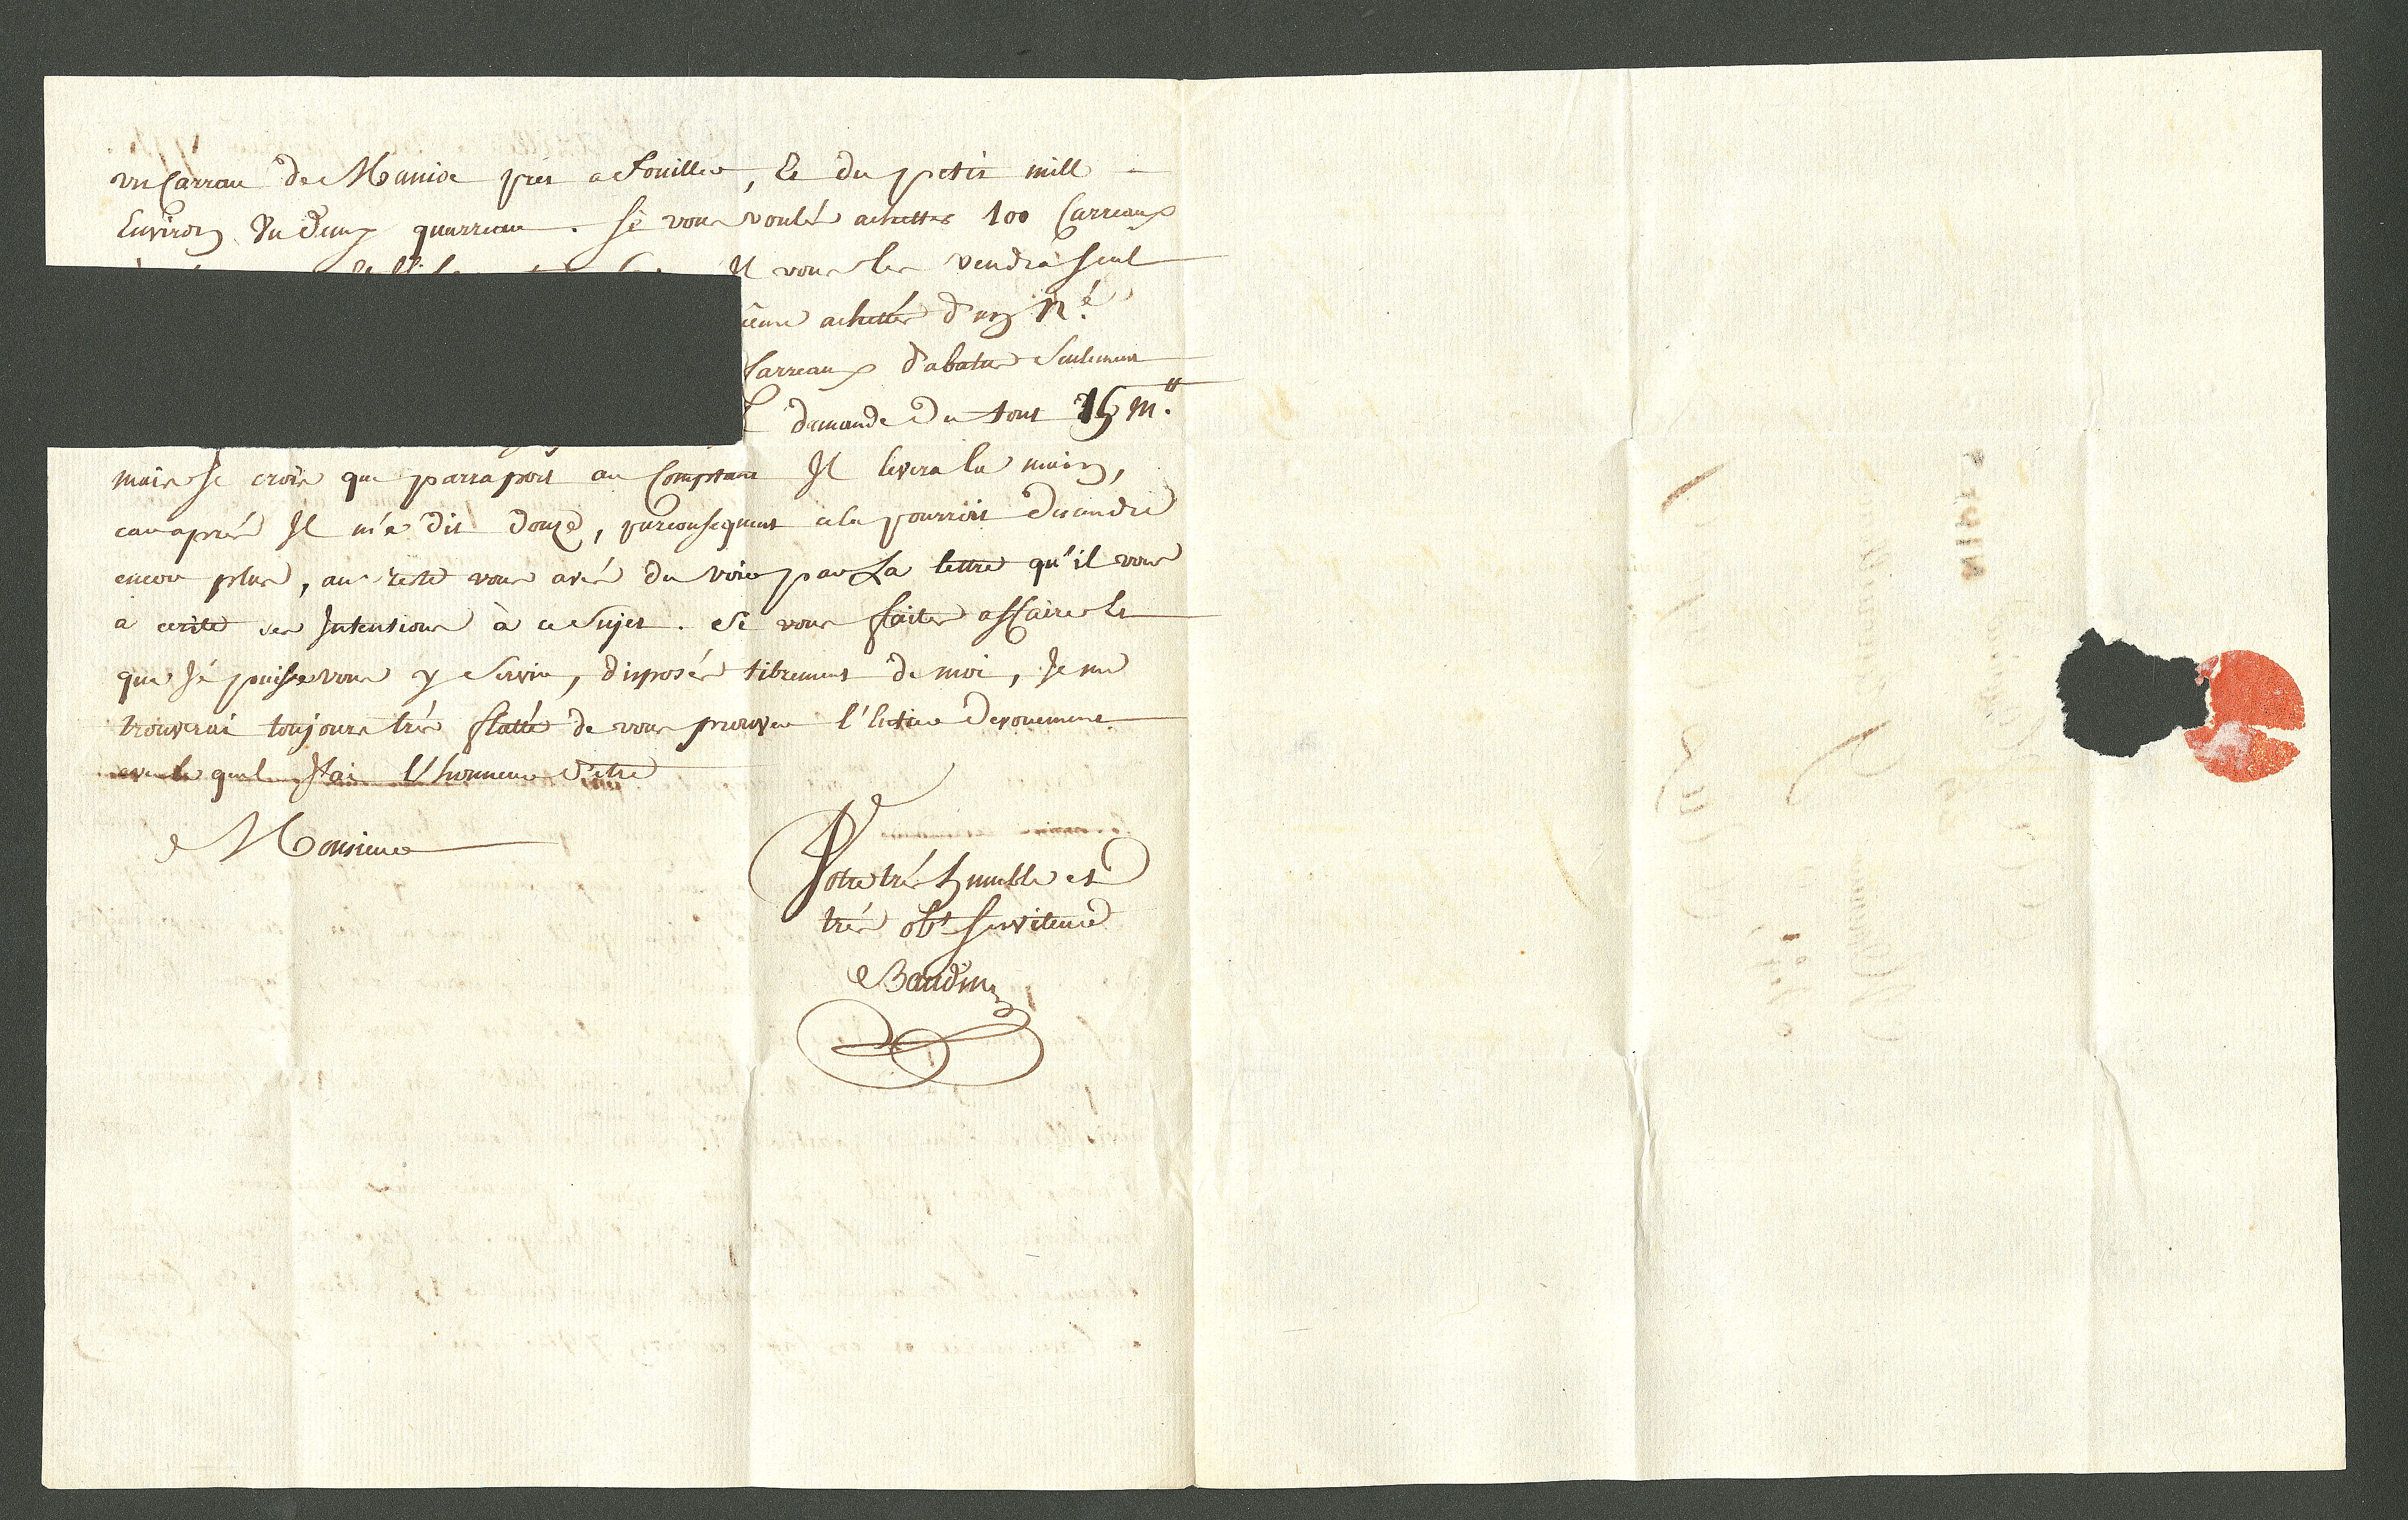 un Carreau de Manioc prés a fouiller, Et du petit mill
Environ Un deux quarreau. Si vous voulés achetter 100 Carreaux
Il vous les vendra seul
achetter d'un N.é
Carreaux d'abatis Seulement
demande du tout 15 m.lt
mais Je crois que parraport au Comptant Il levera la main,
car aprés Il m'a dit douze, parconsequent cela pourroit dessendre
encore plus, au reste vous avés du voir par La lettre qu'il vous
a ecrite ses Intentions à ce Sujet. Si vous faites affaire Et
que Jé puisse vous y Servir, disposés librement de moi, Je me
trouverai toujours trés flatté de vous prouver l'Entier devouement
avec le quel J'ai L'honneur d'etre
Monsieur
Votre trés humble et
trés obt. Serviteur
Baudin